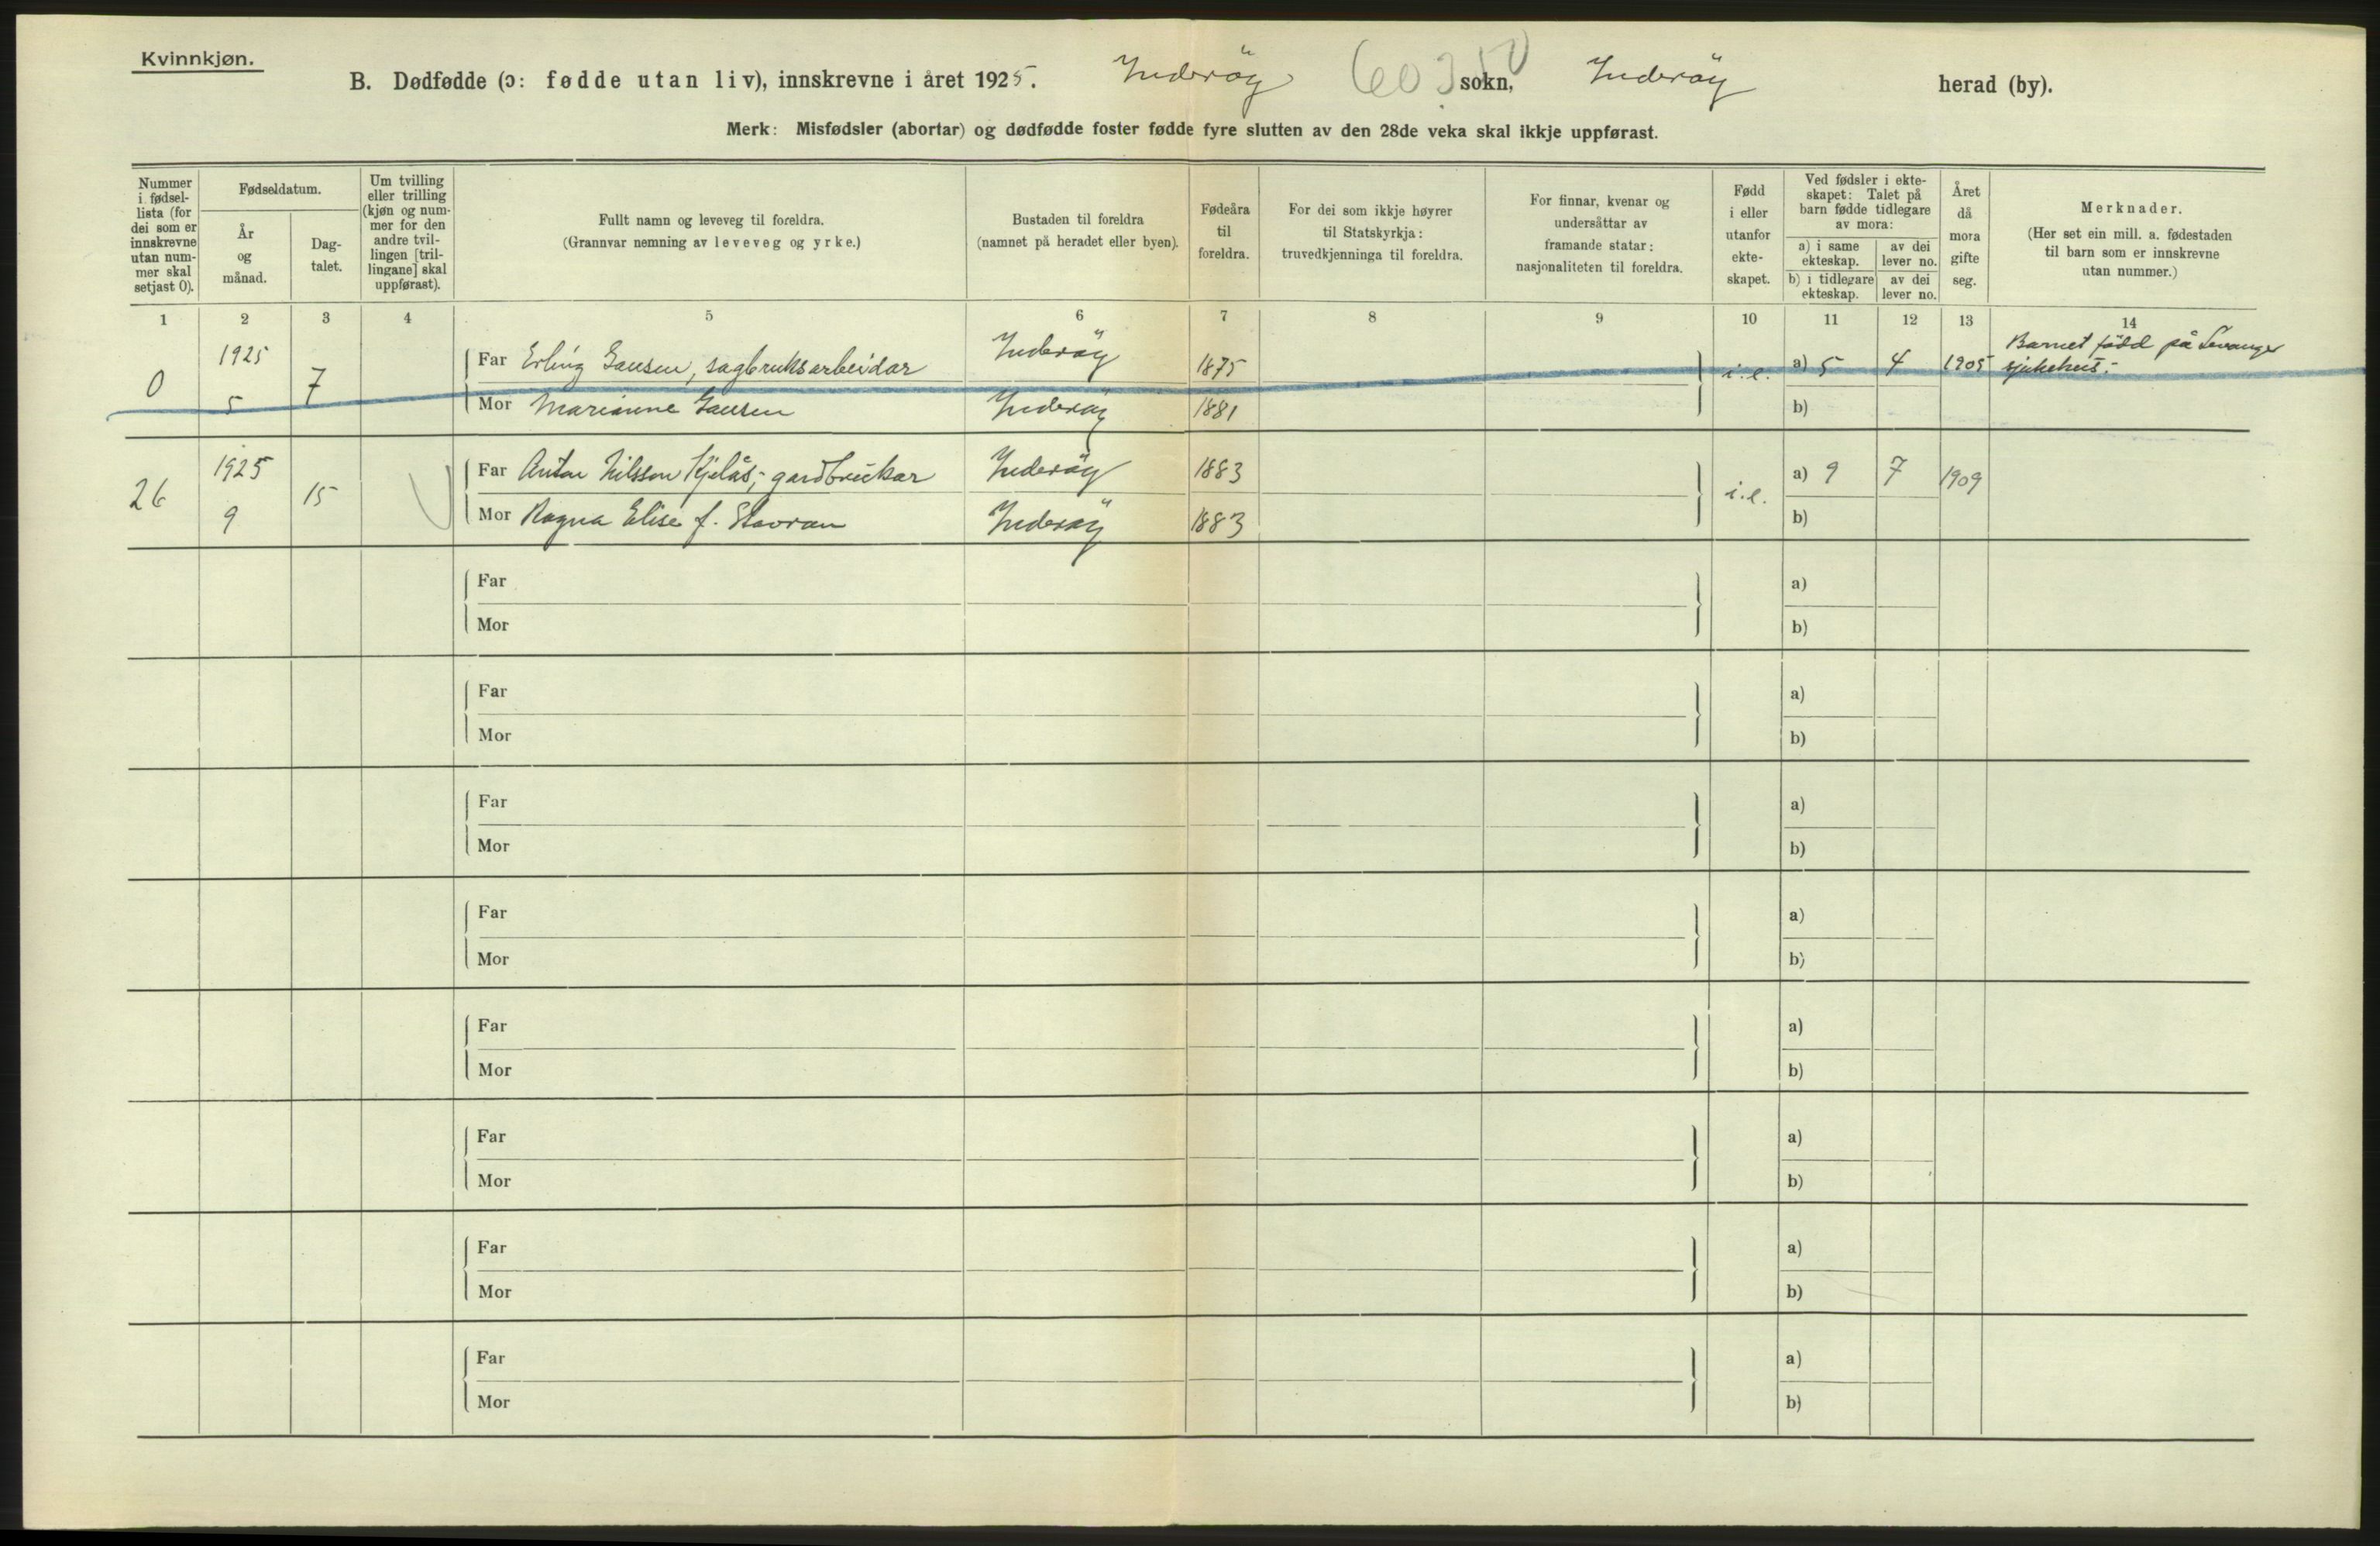 Kvinnkjøn.
B. Dødfødde (ɔ: fødde utan liv), innskrevne i året 1925. Inderöy 603 sokn, Inderöy herad (by).
Merk: Misfødsler (abortar) og dødfødde foster fødde fyre slutten av den 28de veka skal ikkje uppførast.
Nummer i fødsel-lista (for dei som er innskrevne utan num-mer skal setjast 0).
Fødseldatum.
År og månad.
Dag-talet.
Um tvilling eller trilling (kjøn og num-mer for den andre tvil-lingen [tril-lingane] skal uppførast).
Fullt namn og leveveg til foreldra.
(Grannvar nemning av leveveg og yrke.)
Bustaden til foreldra
(namnet på heradet eller byen).
Fødeåra til foreldra.
For dei som ikkje høyrer til Statskyrkja: truvedkjenninga til foreldra.
For finnar, kvenar og undersåttar av framande statar: nasjonaliteten til foreldra.
Fødd i eller utanfor ekte-skapet.
Ved fødsler i ekte-skapet: Talet på barn fødde tidlegare av mora:
a) i same ekteskap.
av dei lever no.
b) i tidlegare ekteskap.
av dei lever no.
Året då mora gifte seg.
Merknader.
(Her set ein mill. a. fødestaden til barn som er innskrevne utan nummer.)
1 2 3 4 5 6 7 8 9 10 11 12 13 14
0 1925 5 7 Far Erling Jansen, sagbruksarbeidar Inderöy 1875 i.e. a) 5 4 1905 Barnet född på Levanger sjukehus.
Mor Marianne Jansen Inderöy 1881 b)
26 1925 9 15 Far Anton Nilsson Kjelås, gardbrukar Inderöy 1883 i.e. a) 9 7 1909
Mor Ragna Elise f. Stavran Inderöy 1883 b)
Far a)
Mor b)
Far a)
Mor b)
Far a)
Mor b)
Far a)
Mor b)
Far a)
Mor b)
Far a)
Mor b)
Far a)
Mor b)
Far a)
Mor b)